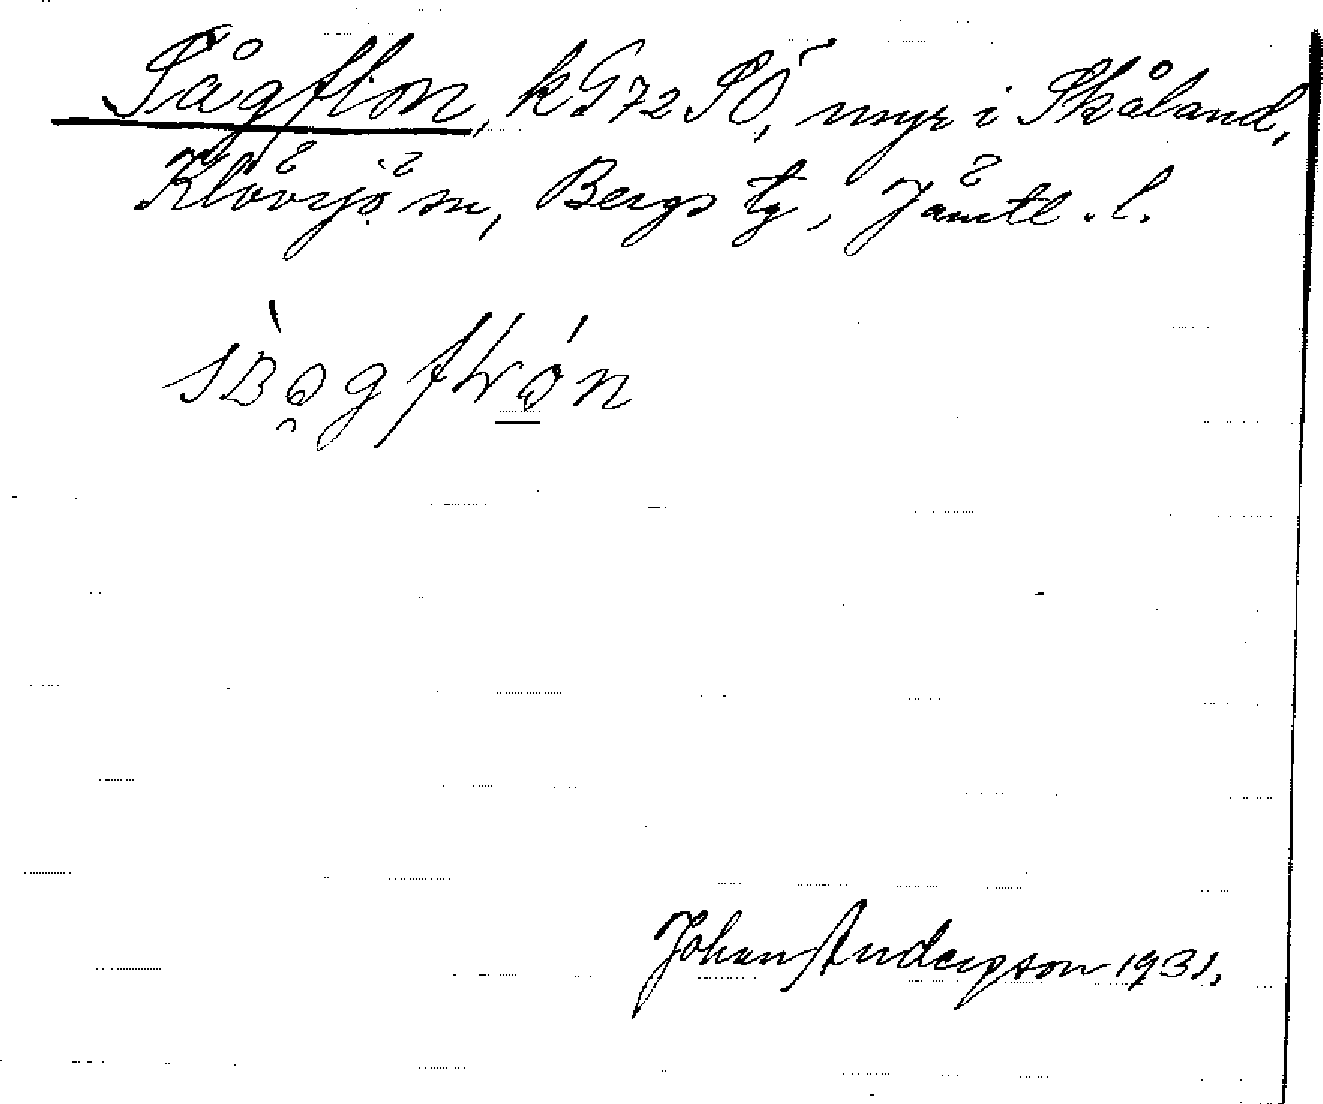 Sågflon, k G72 SÖ, myr i Skåland,
Klövsjö sn, Bergs tg, Jämtl. l.
Johan Anderson 1931.